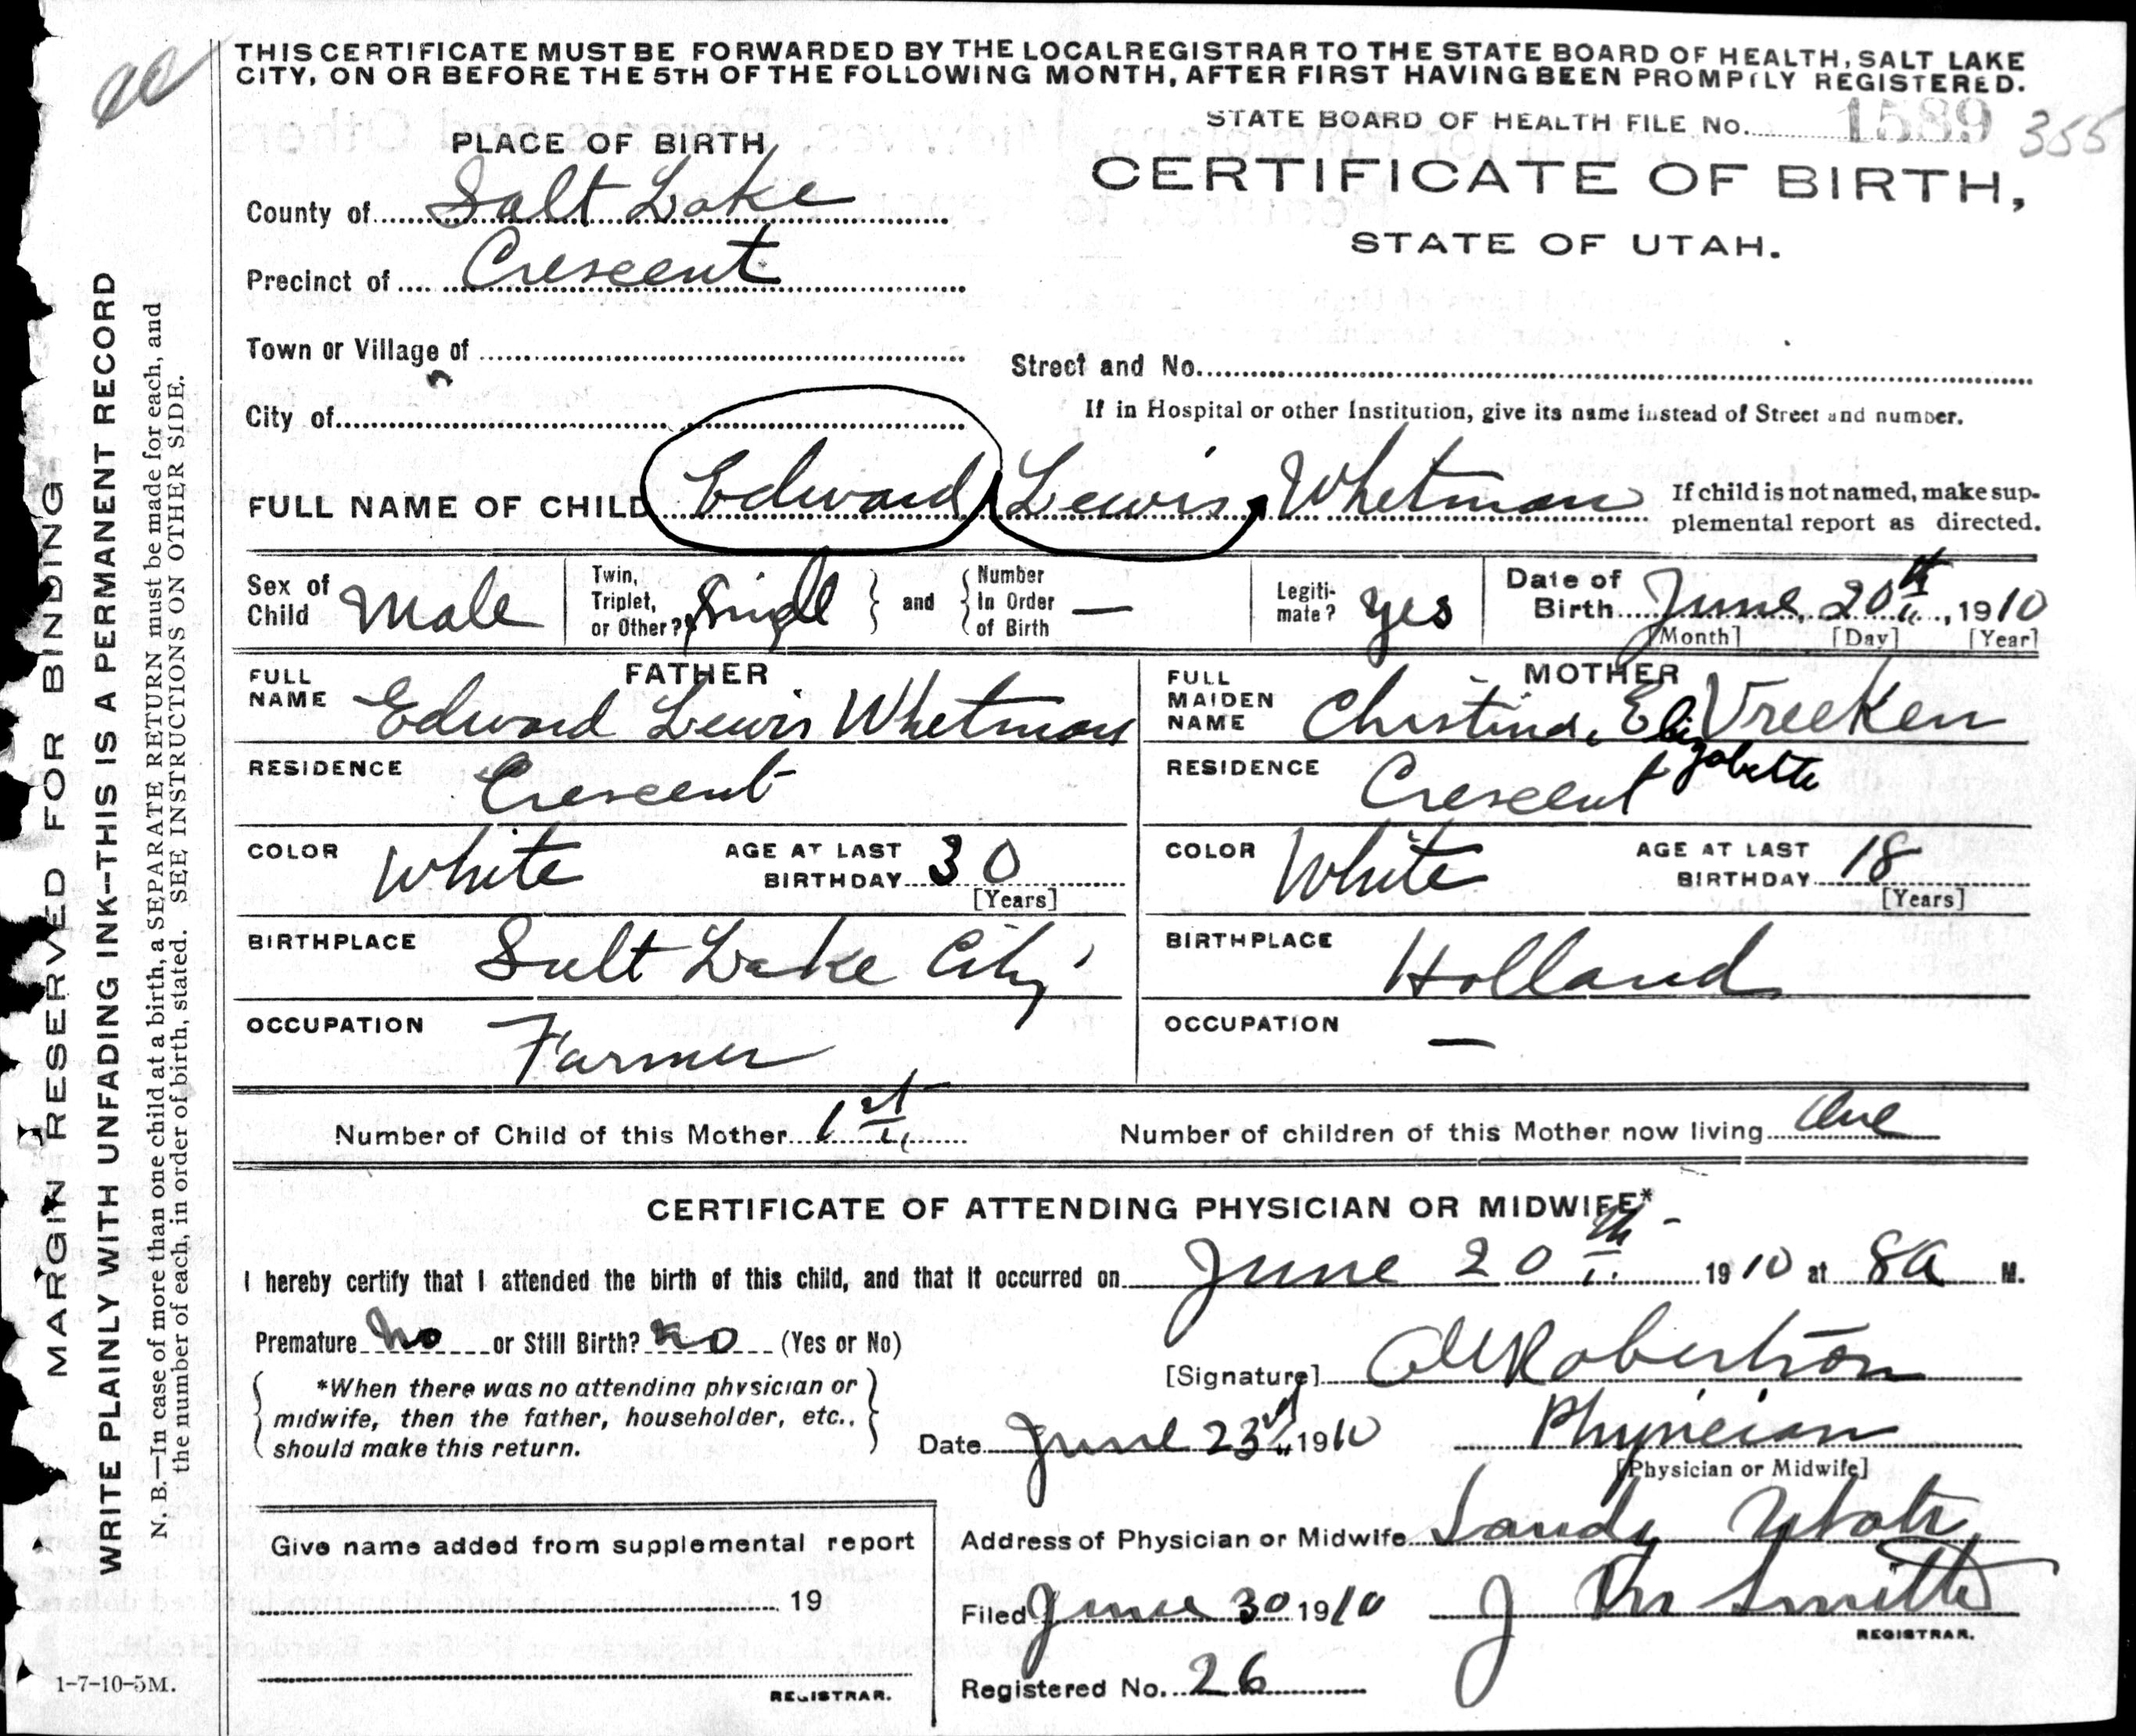 THIS CERTIFICATE MUST BE FORWARDED BY THE LOCAL REGISTRAR TO THE STATE BOARD OF HEALTH, SALT LAKE
CITY, ON OR BEFORE THE 5TH OF THE FOLLOWING MONTH, AFTER FIRST HAVING BEEN PROMPTLY REGISTERED.
STATE BOARD OF HEALTH FILE No. 1589 355
PLACE OF BIRTH
CERTIFICATE OF BIRTH,
STATE OF UTAH.
County of Salt Lake
Precinct of Crescent
Town or Village of
Street and No.
City of
If in Hospital or other Institution, give its name instead of Street and number.
FULL NAME OF CHILD Edward Lewis Whetman
If child is not named, make sup-
plemental report as directed.
Sex of Child Male
Twin, Triplet, or Other? Singl
and
Number In Order of Birth —
Legiti-mate? Yes
Date of Birth June, 20th, 1910
[Month] [Day] [Year]
FATHER
FULL NAME Edward Lewis Whetman
RESIDENCE Crescent
COLOR White
AGE AT LAST BIRTHDAY 30
[Years]
BIRTHPLACE Salt Lake City
OCCUPATION Farmer
MOTHER
FULL MAIDEN NAME Christina, Elizabette Vreeken
RESIDENCE Crescent
COLOR White
AGE AT LAST BIRTHDAY 18
[Years]
BIRTHPLACE Holland
OCCUPATION —
Number of Child of this Mother 1st
Number of children of this Mother now living One
CERTIFICATE OF ATTENDING PHYSICIAN OR MIDWIFE*
I hereby certify that I attended the birth of this child, and that it occurred on June 20th 1910 at 8 a M.
Premature No or Still Birth? No (Yes or No)
*When there was no attending physician or
midwife, then the father, householder, etc.,
should make this return.
[Signature] Robertson
Date June 23rd 1910
Physician
[Physician or Midwife]
Give name added from supplemental report
19
REGISTRAR.
Address of Physician or Midwife Sandy Utah
Filed June 30 1910 J M Smith
REGISTRAR.
Registered No. 26
1-7-10-5M.
MARGIN RESERVED FOR BINDING
WRITE PLAINLY WITH UNFADING INK--THIS IS A PERMANENT RECORD
N. B.—In case of more than one child at a birth, a SEPARATE RETURN must be made for each, and
the number of each, in order of birth, stated. SEE INSTRUCTIONS ON OTHER SIDE.